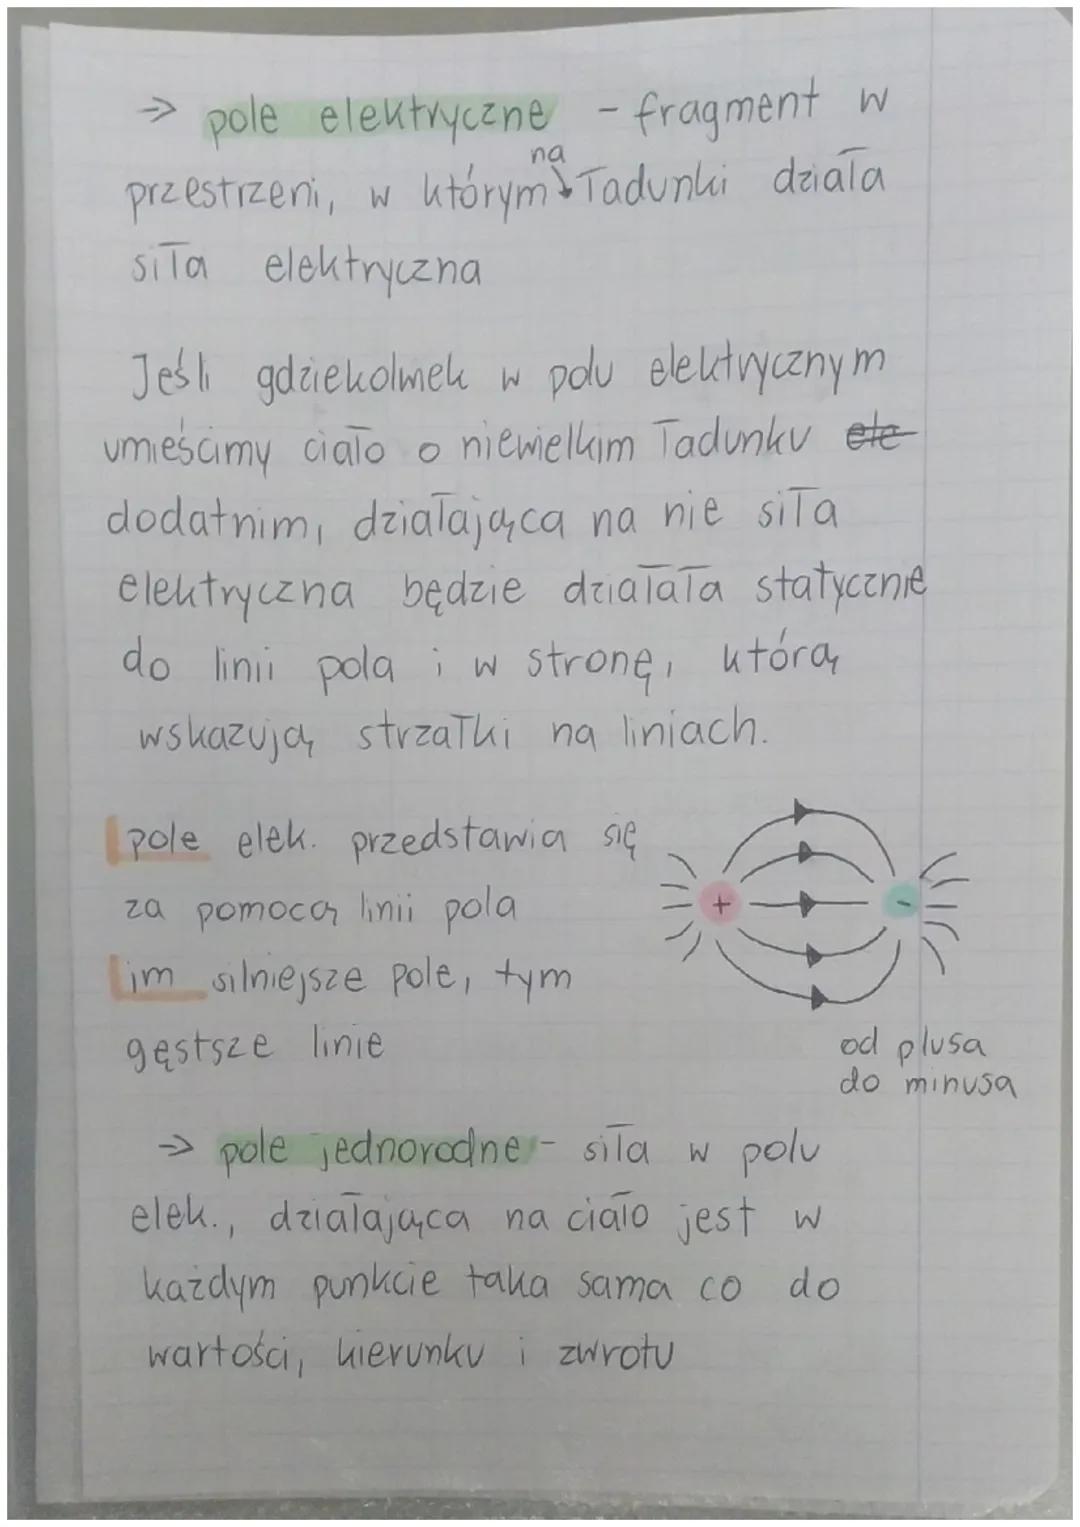 → pole elektryczne - fragment w
na
przestrzeni, w którym ładunki działa
siła elektryczna
Jeśli gdziekolwiek w polu elektrycznym
umieścimy ciało o niewielkim ładunku ele
dodatnim, działająca na nie siła
elektryczna będzie działała statycznie
do linii pola i w stronę, którą
wskazują strzałki na liniach.
pole elek. przedstawia się
za pomocą linii pola
im silniejsze pole, tym
gęstsze linie
+ -
od plusa
do minusa
→ pole jednorodne - siła w polu
elek., działająca na ciało jest w
każdym punkcie taka sama co do
wartości, kierunku i zwrotu